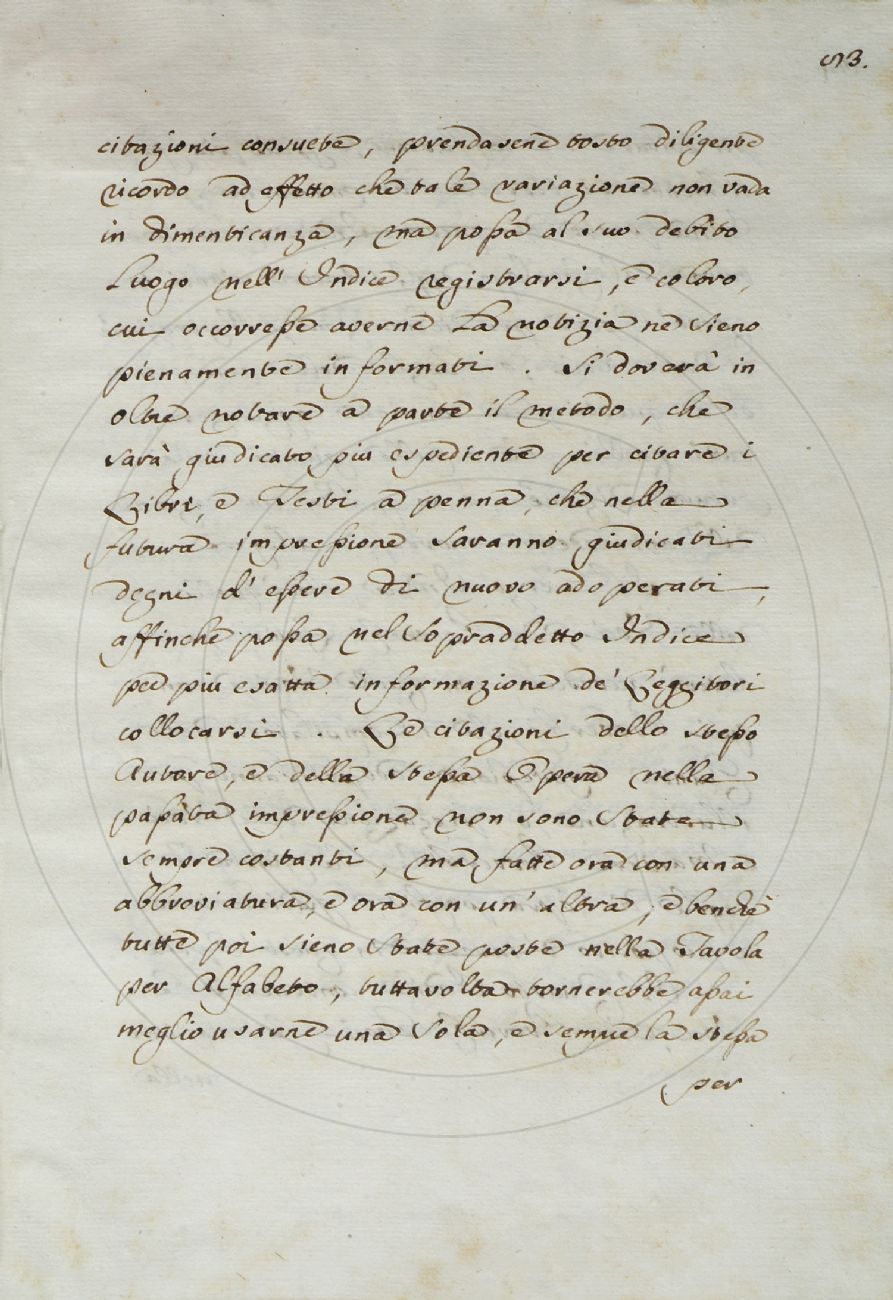 93.
citazioni consuete, prendasene tosto diligente
ricordo ad effetto che tale variazione non vada
in dimenticanza, ma possa al suo debito
Luogo nell' Indice registrarsi, e coloro,
cui occorresse averne La notizia ne sieno
pienamente informati. Si doverà in
oltre notare a parte il metodo, che
sarà giudicato piu espediente per citare i
Libri, e Testi a penna, che nella
futura impressione saranno giudicati
degni d' essere di nuovo adoperati,
affinche possa nel Sopraddetto Indice
per piu esatta informazione de' Leggitori
collocarsi. Le citazioni dello stesso
Autore, e della stessa Opera nella
passata impressione non sono State
sempre costanti, ma fatte ora con una
abbreviatura, e ora con un' altra, e benchè
tutte poi sieno State poste nella Tavola
per Alfabeto, tuttavolta tornerebbe assai
meglio usarne una Sola, e sempre la stessa
per